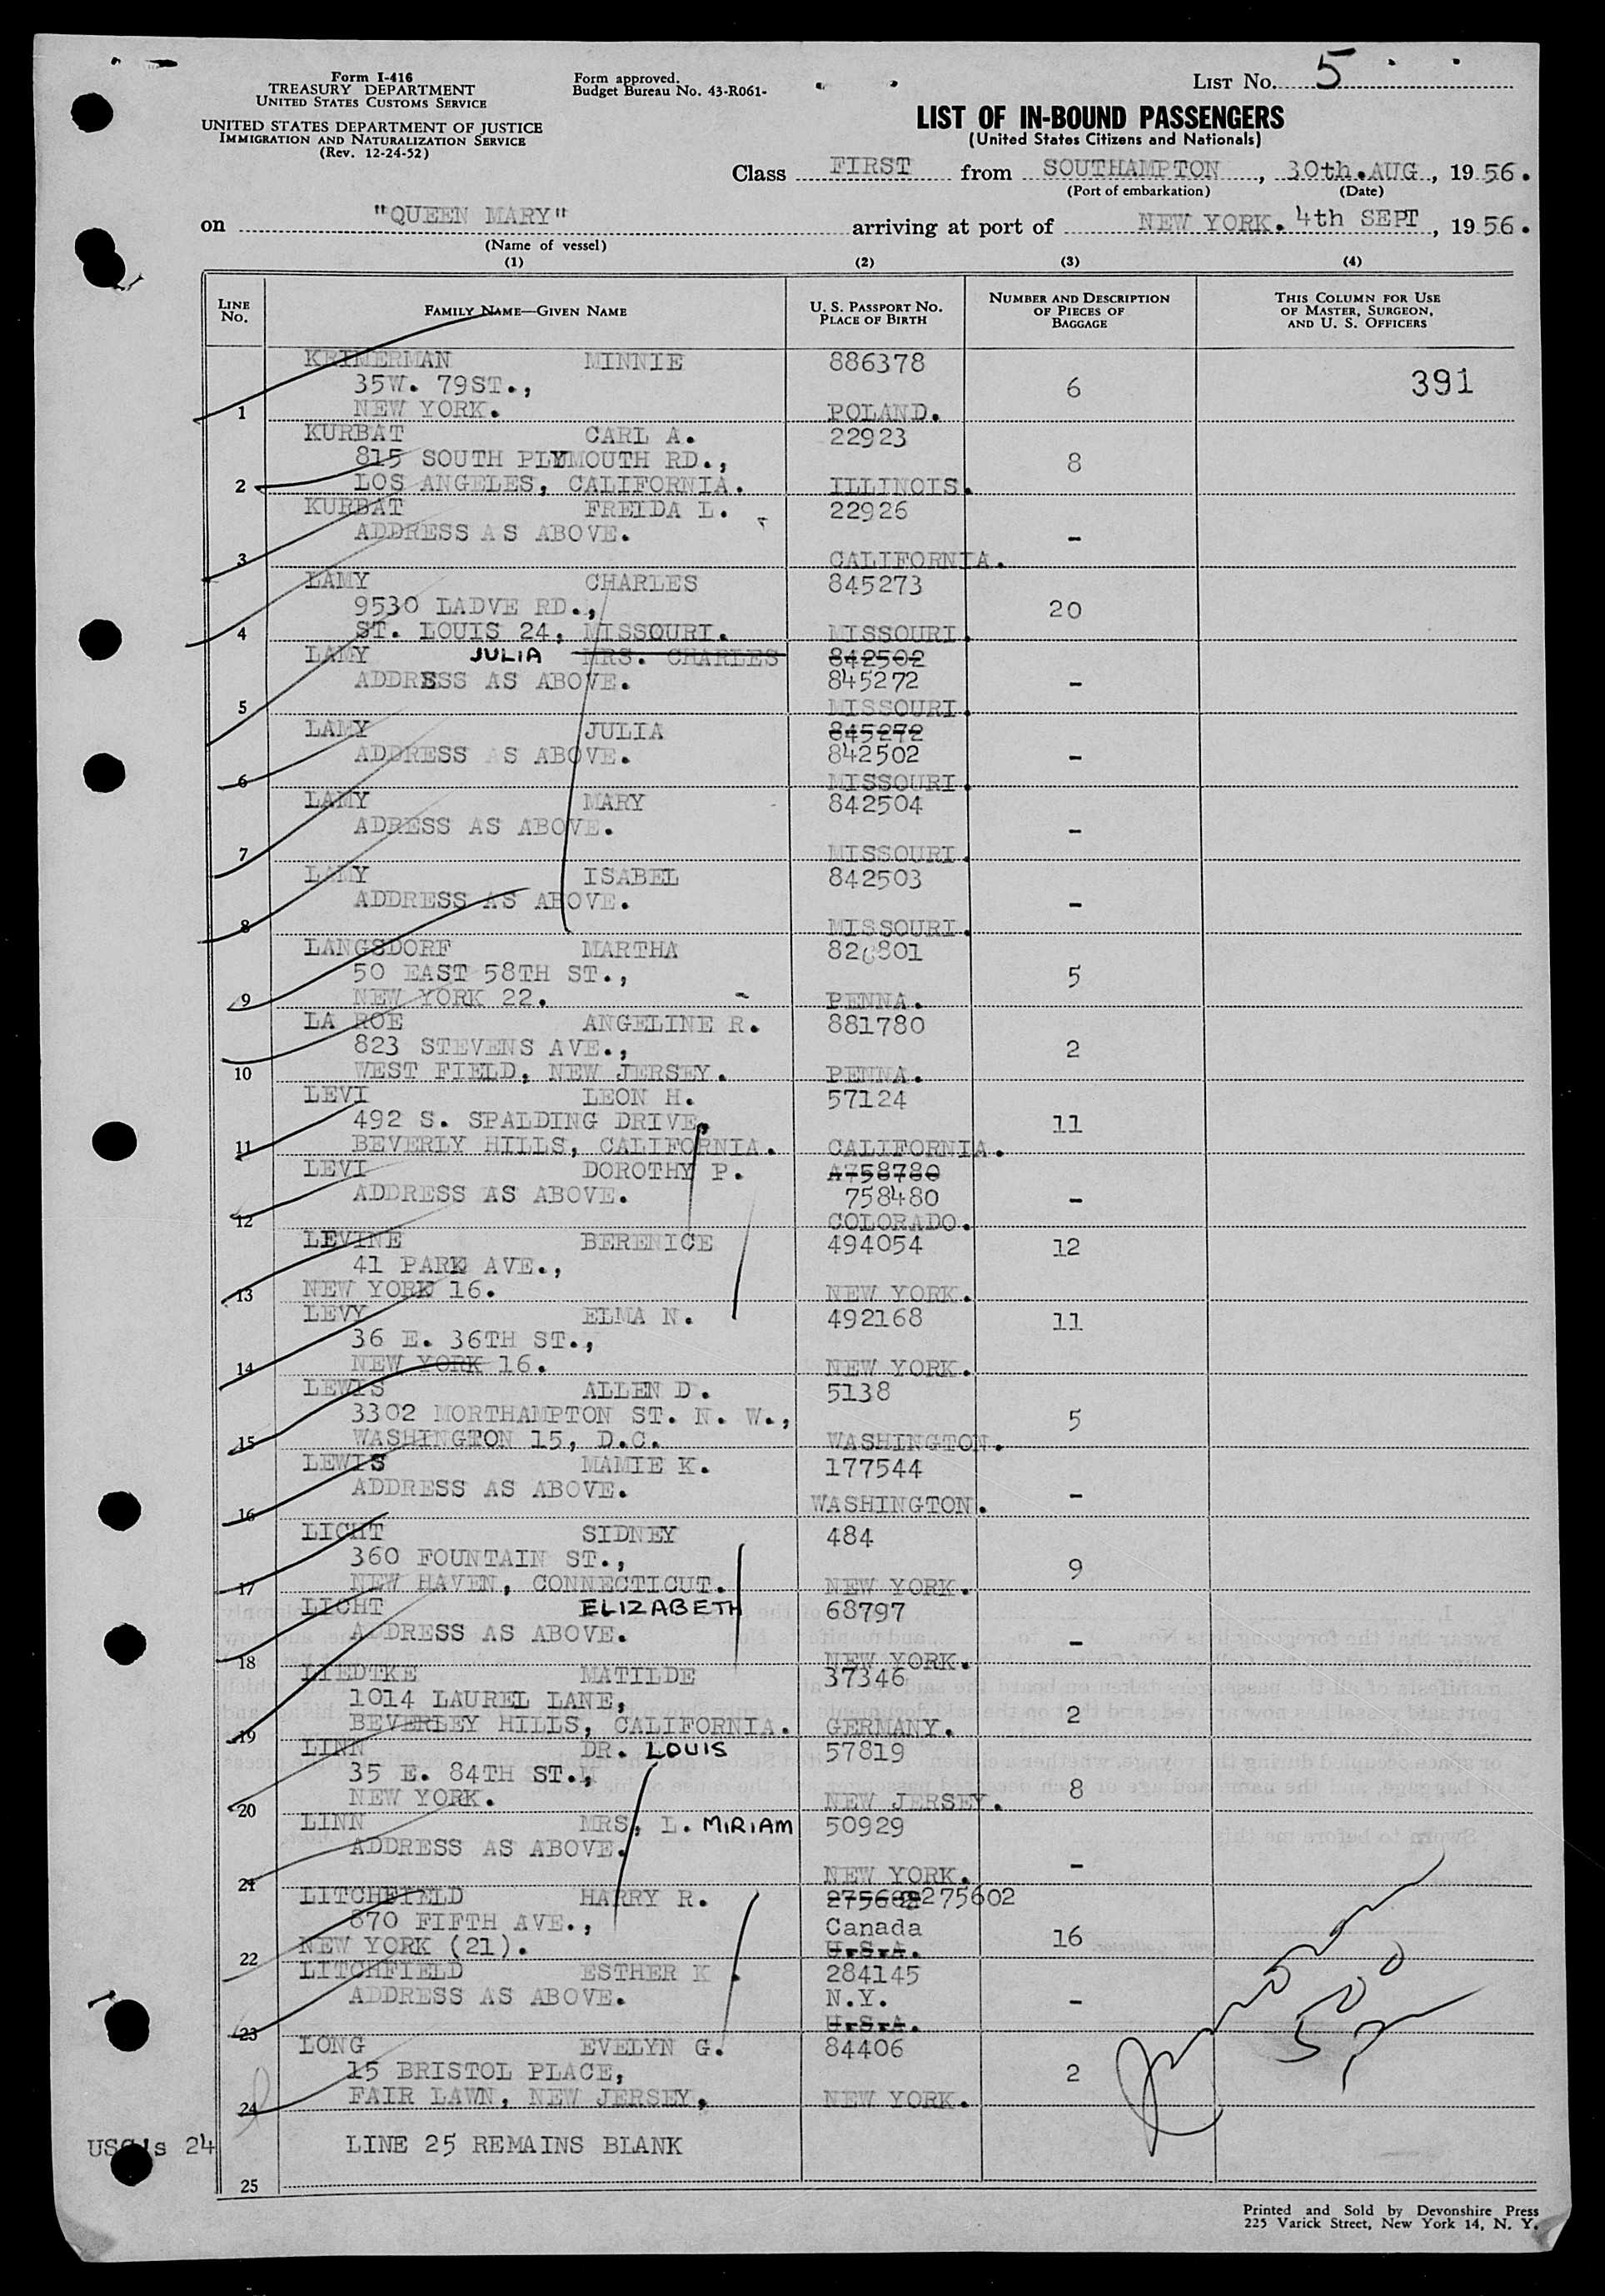 Form I-416
TREASURY DEPARTMENT
UNITED STATES CUSTOMS SERVICE
UNITED STATES DEPARTMENT OF JUSTICE
IMMIGRATION AND NATURALIZATION SERVICE
(Rev. 12-24-52)
Form approved.
Budget Bureau No. 43-R061-
LIST No. 5
LIST OF IN-BOUND PASSENGERS
(United States Citizens and Nationals)
Class FIRST from SOUTHAMPTON, 30th.AUG, 1956.
(Port of embarkation) (Date)
on "QUEEN MARY" arriving at port of NEW YORK. 4th SEPT, 1956.
(Name of vessel)
(1) (2) (3) (4)
LINE No. FAMILY NAME—GIVEN NAME U. S. PASSPORT NO. PLACE OF BIRTH NUMBER AND DESCRIPTION OF PIECES OF BAGGAGE THIS COLUMN FOR USE OF MASTER, SURGEON, AND U. S. OFFICERS
KRINERMAN MINNIE 886378
35W. 79ST., 6 391
1 NEW YORK. POLAND.
KURBAT CARL A. 22923
815 SOUTH PLYMOUTH RD., 8
2 LOS ANGELES, CALIFORNIA. ILLINOIS.
KURBAT FREIDA L. 22926
ADDRESS AS ABOVE. -
3 CALIFORNIA.
LAMY CHARLES 845273
9530 LADVE RD., 20
4 ST. LOUIS 24, MISSOURI. MISSOURI.
LAMY JULIA MRS. CHARLES 842502
ADDRESS AS ABOVE. 845272 -
5 MISSOURI.
LAMY JULIA 845272
ADDRESS AS ABOVE. 842502 -
6 MISSOURI.
LAMY MARY 842504
ADRESS AS ABOVE. -
7 MISSOURI.
LAMY ISABEL 842503
ADDRESS AS ABOVE. -
8 MISSOURI.
LANGSDORF MARTHA
50 EAST 58TH ST., 5
9 NEW YORK 22. PENNA.
LA ROE ANGELINE R. 881780
823 STEVENS AVE., 2
10 WEST FIELD, NEW JERSEY. PENNA.
LEVI LEON H. 57124
492 S. SPALDING DRIVE, 11
11 BEVERLY HILLS, CALIFORNIA. CALIFORNIA.
LEVI DOROTHY P. A758780
ADDRESS AS ABOVE. 758480 -
12 COLORADO.
LEVINE BERENICE 494054 12
41 PARK AVE.,
13 NEW YORK 16. NEW YORK.
LEVY ELMA N. 492168 11
36 E. 36TH ST.,
14 NEW YORK 16. NEW YORK.
LEWIS ALLEN D. 5138
3302 MORTHAMPTON ST. N. W., 5
15 WASHINGTON 15, D.C. WASHINGTON.
LEWIS MAMIE K. 177544
ADDRESS AS ABOVE. -
16 WASHINGTON.
LICHT SIDNEY 484
360 FOUNTAIN ST., 9
17 NEW HAVEN, CONNECTICUT. NEW YORK.
LICHT ELIZABETH 68797
ADDRESS AS ABOVE. -
18 NEW YORK.
LIEDTKE MATILDE 37346
1014 LAUREL LANE, 2
19 BEVERLEY HILLS, CALIFORNIA. GERMANY.
LINN DR. LOUIS 57819
35 E. 84TH ST., 8
20 NEW YORK. NEW JERSEY.
LINN MRS. L. MIRIAM 50929
ADDRESS AS ABOVE. -
21 NEW YORK.
LITCHFIELD HARRY R. 275602
870 FIFTH AVE., Canada 16
22 NEW YORK (21). U.S.A.
LITCHFIELD ESTHER K. 284145
ADDRESS AS ABOVE. N.Y. -
23 U.S.A.
LONG EVELYN G. 84406
15 BRISTOL PLACE, 2
24 FAIR LAWN, NEW JERSEY, NEW YORK.
USC's 24 LINE 25 REMAINS BLANK
25
Printed and Sold by Devonshire Press
225 Varick Street, New York 14, N. Y.